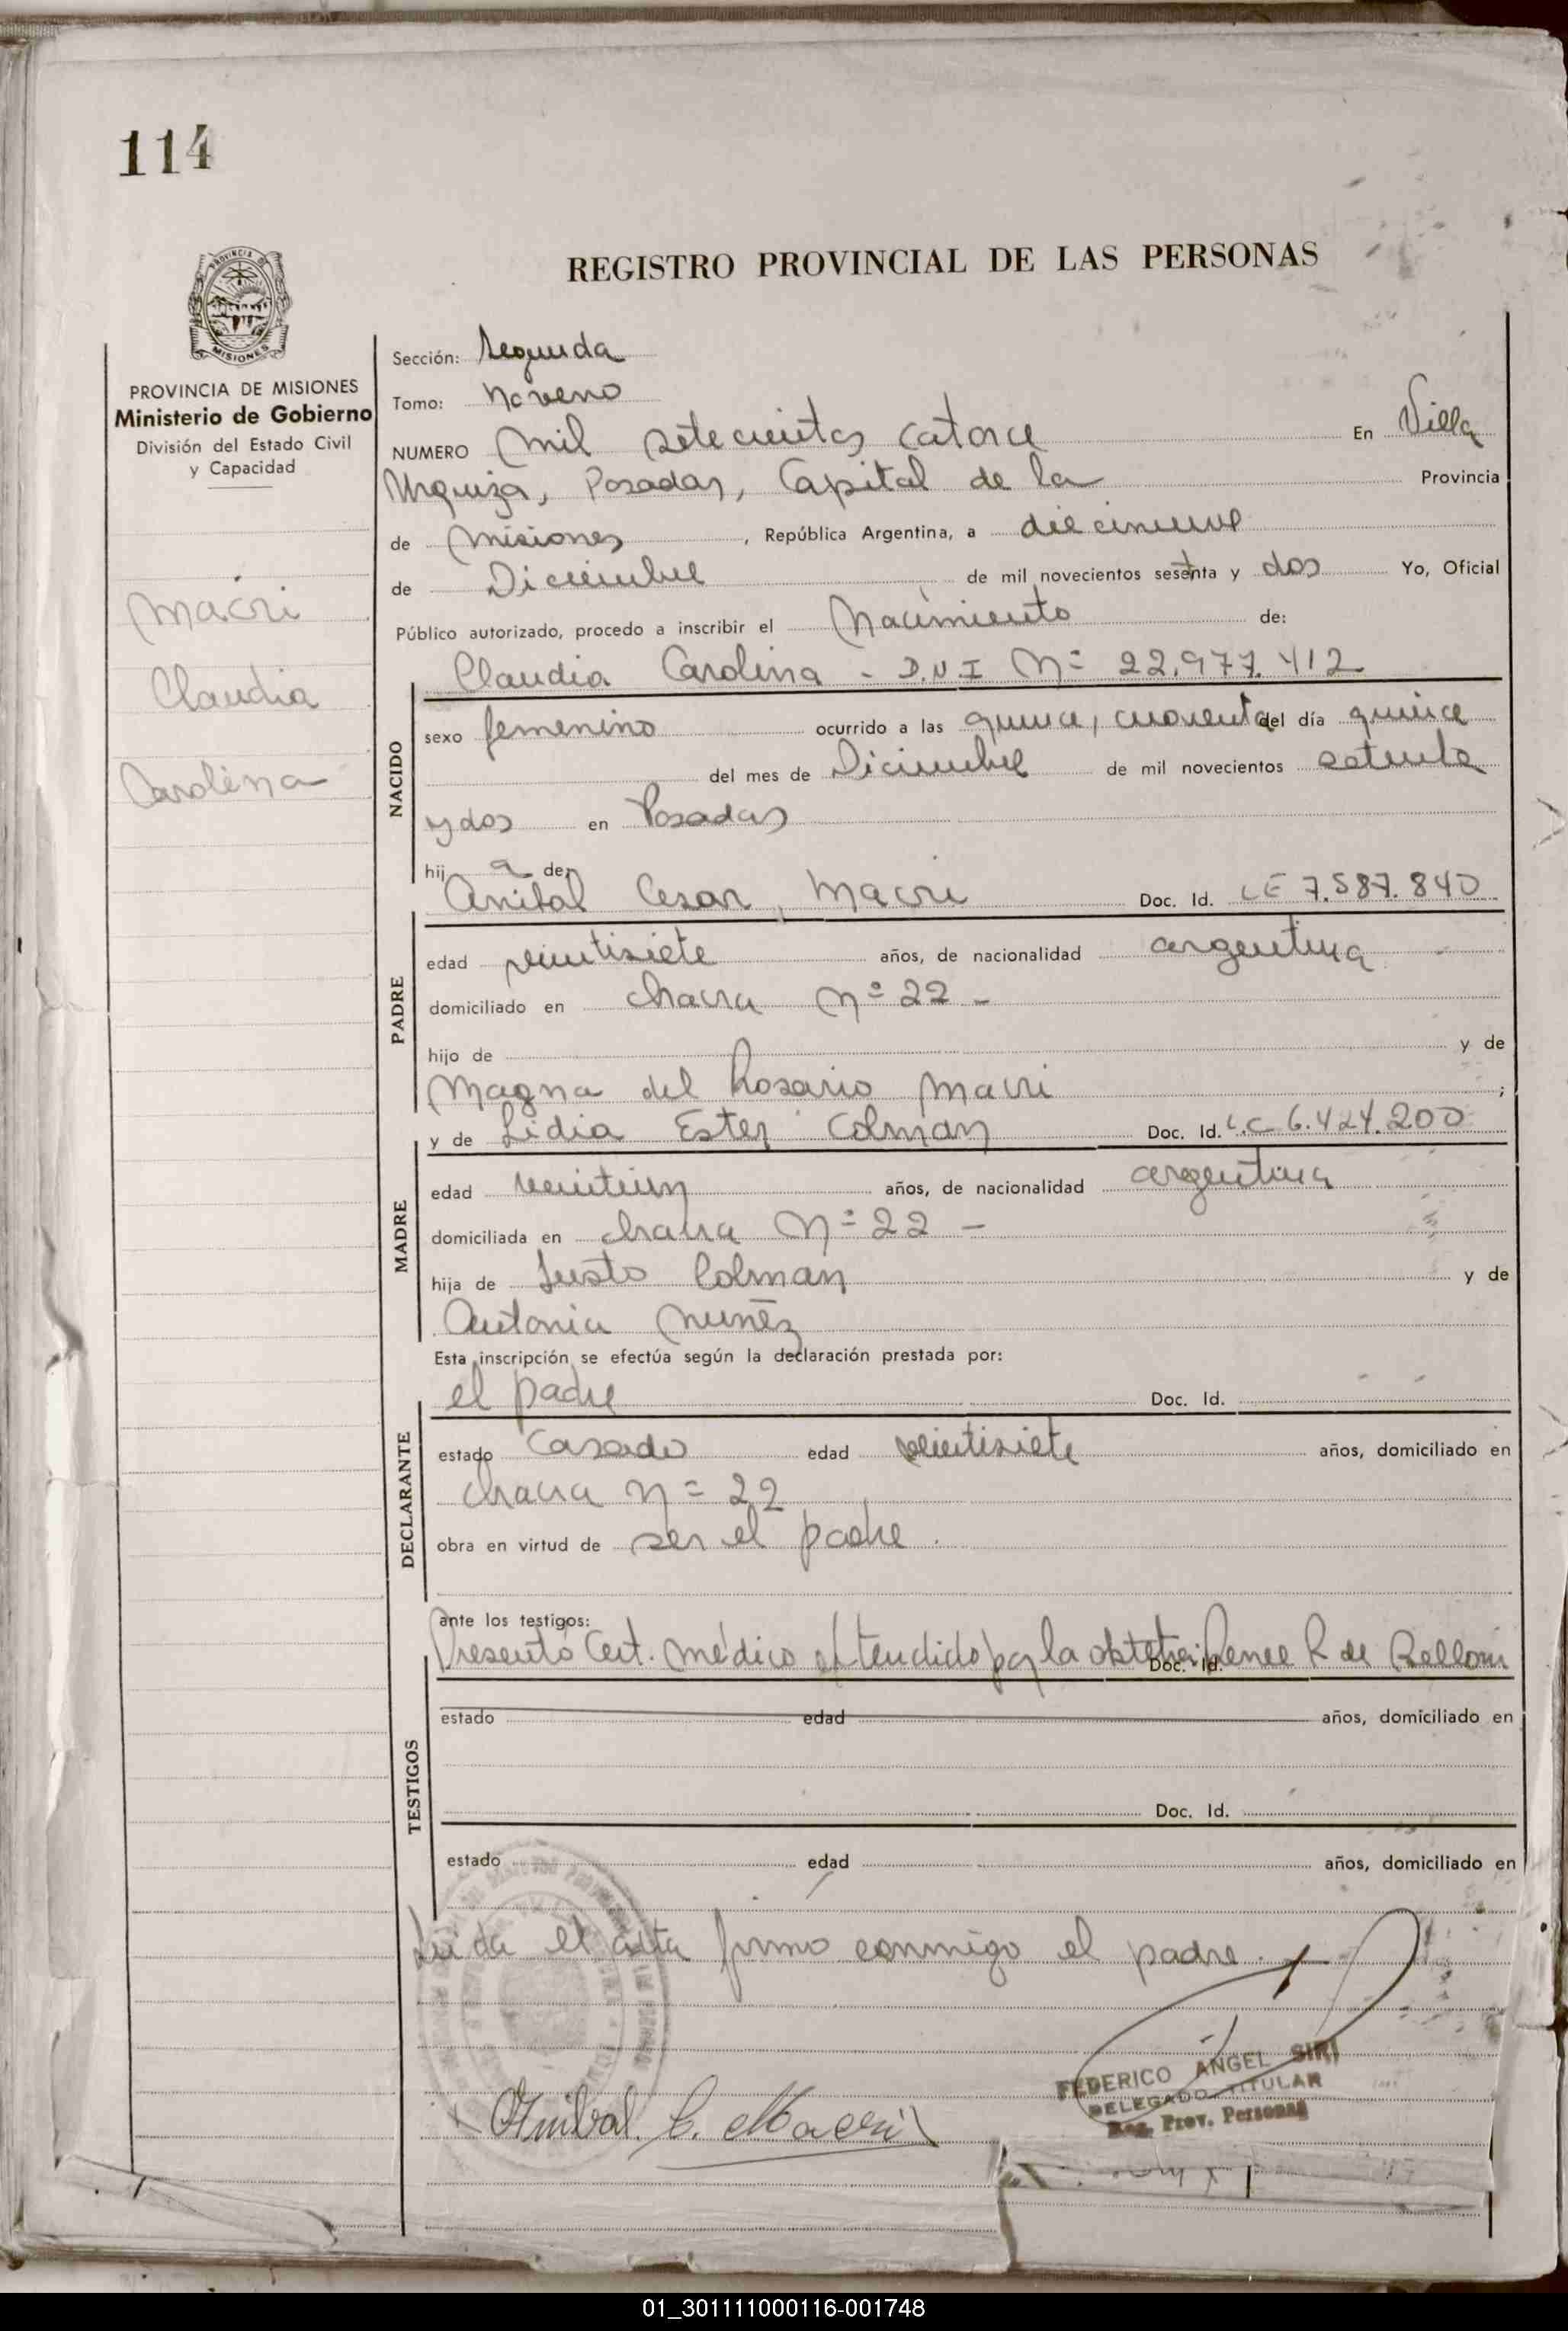 114
REGISTRO PROVINCIAL DE LAS PERSONAS
PROVINCIA DE
MISIONES
PROVINCIA DE MISIONES
Ministerio de Gobierno
División del Estado Civil
y Capacidad
Macri
Claudia
Carolina
Sección: Segunda
Tomo: Noveno
NUMERO Mil setecientos catorce En Villa
Urquiza, Posadas, Capital de la Provincia
de Misiones, República Argentina, a diecinueve
de Diciembre de mil novecientos setenta y dos Yo, Oficial
Público autorizado, procedo a inscribir el Nacimiento de:
Claudia Carolina - D.N.I Nº 22.977.412
NACIDO
sexo femenino ocurrido a las quince, cuarenta del día quince
del mes de Diciembre de mil novecientos setenta
y dos en Posadas
hij a de:
Anibal Cesar, Macri Doc. Id. LE 7.587.840
PADRE
edad veintisiete años, de nacionalidad argentina
domiciliado en chacra Nº 22 -
hijo de y de
Magna del Rosario Macri ;
y de Lidia Ester Colman Doc. Id. L.C 6.424.200
MADRE
edad veintiun años, de nacionalidad argentina
domiciliada en chacra Nº 22 -
hija de Justo Colman y de
Antonia Nuñez
Esta inscripción se efectúa según la declaración prestada por:
el padre Doc. Id.
DECLARANTE
estado Casado edad veintisiete años, domiciliado en
chacra Nº 22
obra en virtud de ser el padre.
ante los testigos:
Presentó Cert. médico extendido por la obstetra: Renee R de Belloni
Doc. Id.
TESTIGOS
estado edad años, domiciliado en
Doc. Id.
estado edad años, domiciliado en
Leida el acta firmo conmigo el padre.
Anibal C. Macri
FEDERICO ANGEL SIRI
DELEGADO TITULAR
Reg. Prov. Personas
01_301111000116-001748